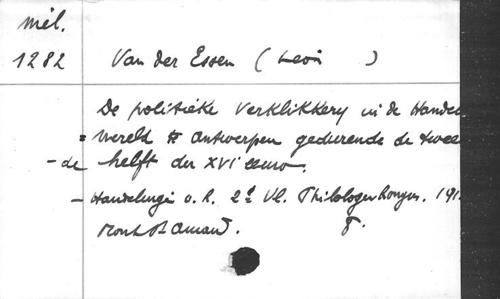 mél.
1282 Van der Essen (Léon )
De politieke Verklikkery in de Handel
= wereld te Antwerpen gedurende de twee
- de helft der XVIe eeuw.
- Handelingen v. h. 2e Vl. Philologencongres. 191
Mont St Amand. 8.